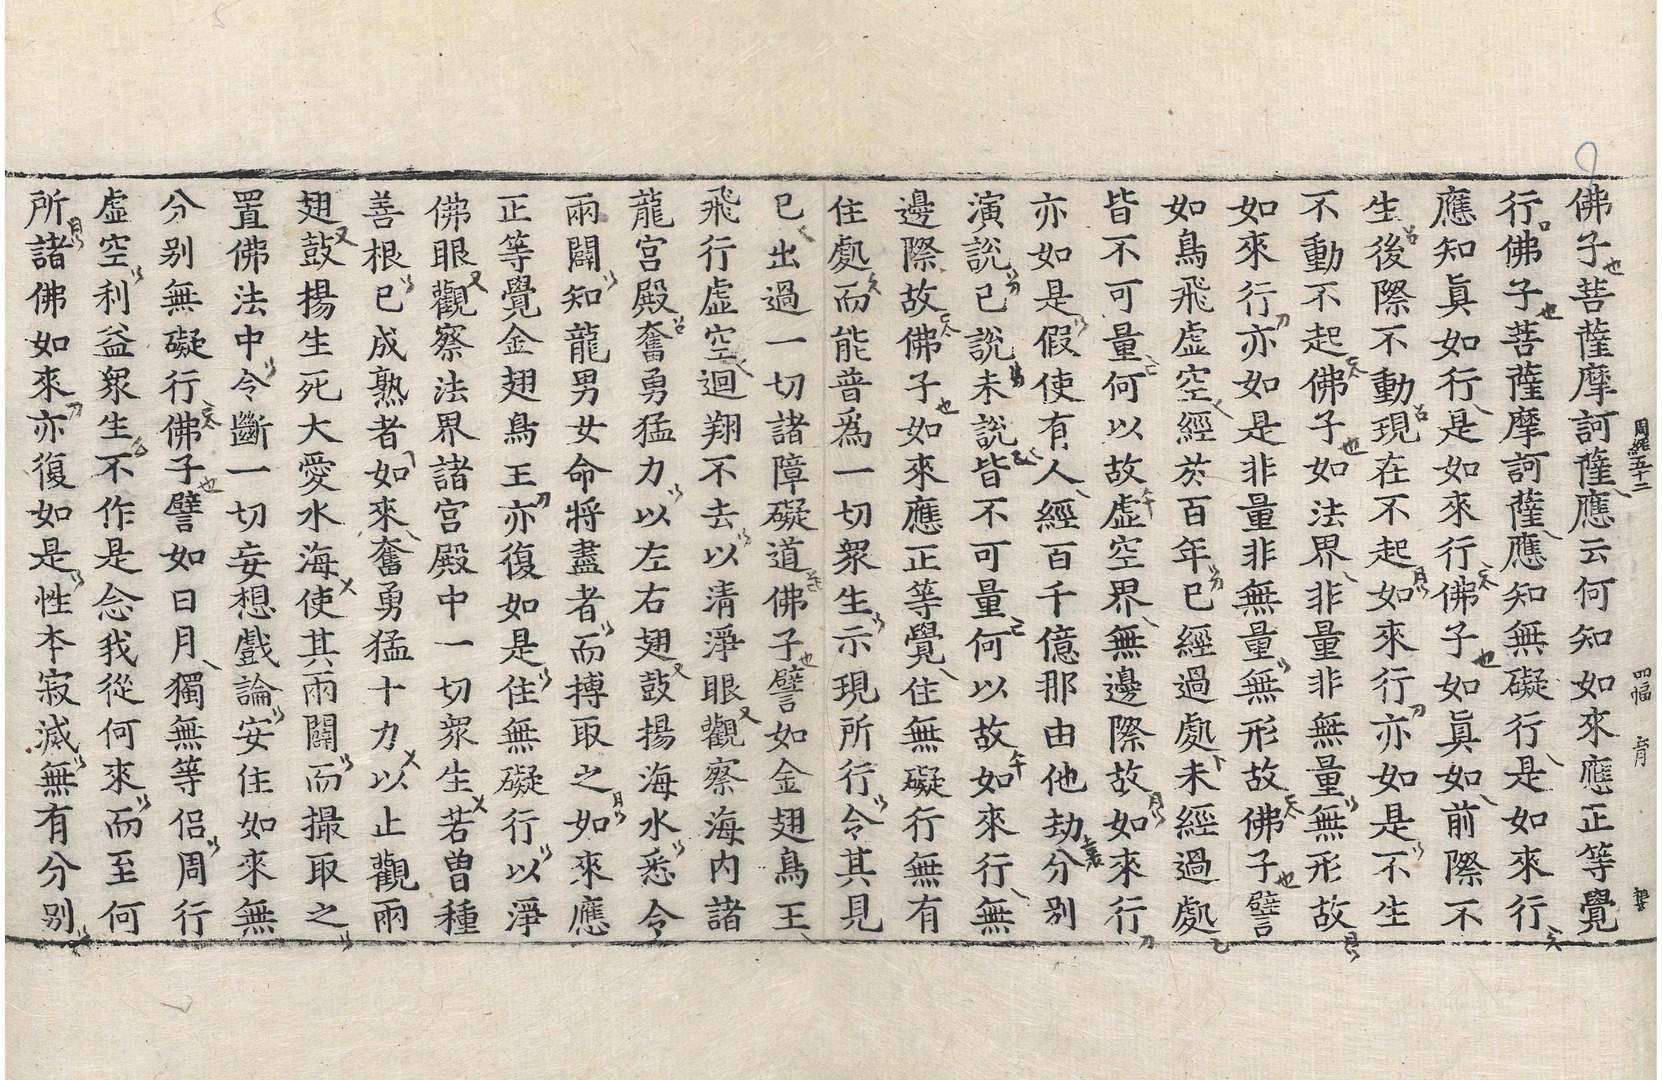 周經五十二 四幅
佛子菩薩摩訶薩應云何知如來應正等覺
行佛子菩薩摩訶薩應知無礙行是如來行
應知眞如行是如來行佛子如眞如前際不
生後際不動現在不起如來行亦如是不生
不動不起佛子如法界非量非無量無形故
如來行亦如是非量非無量無形故佛子譬
如鳥飛虛空經於百年已經過處未經過處
皆不可量何以故虛空界無邊際故如來行
亦如是假使有人經百千億那由他劫分別
演說已說未說皆不可量何以故如來行無
邊際故佛子如來應正等覺住無礙行無有
住處而能普爲一切衆生示現所行令其見
已出過一切諸障礙道佛子譬如金翅鳥王
飛行虛空迴翔不去以清淨眼觀察海內諸
龍宮殿奮勇猛力以左右翅鼓揚海水悉令
兩闢知龍男女命將盡者而搏取之如來應
正等覺金翅鳥王亦復如是住無礙行以淨
佛眼觀察法界諸宮殿中一切衆生若曾種
善根已成熟者如來奮勇猛十力以止觀兩
翅鼓揚生死大愛水海使其兩闢而撮取之
置佛法中令斷一切妄想戲論安住如來無
分別無礙行佛子譬如日月獨無等侶周行
虛空利益衆生不作是念我從何來而至何
所諸佛如來亦復如是性本寂滅無有分別